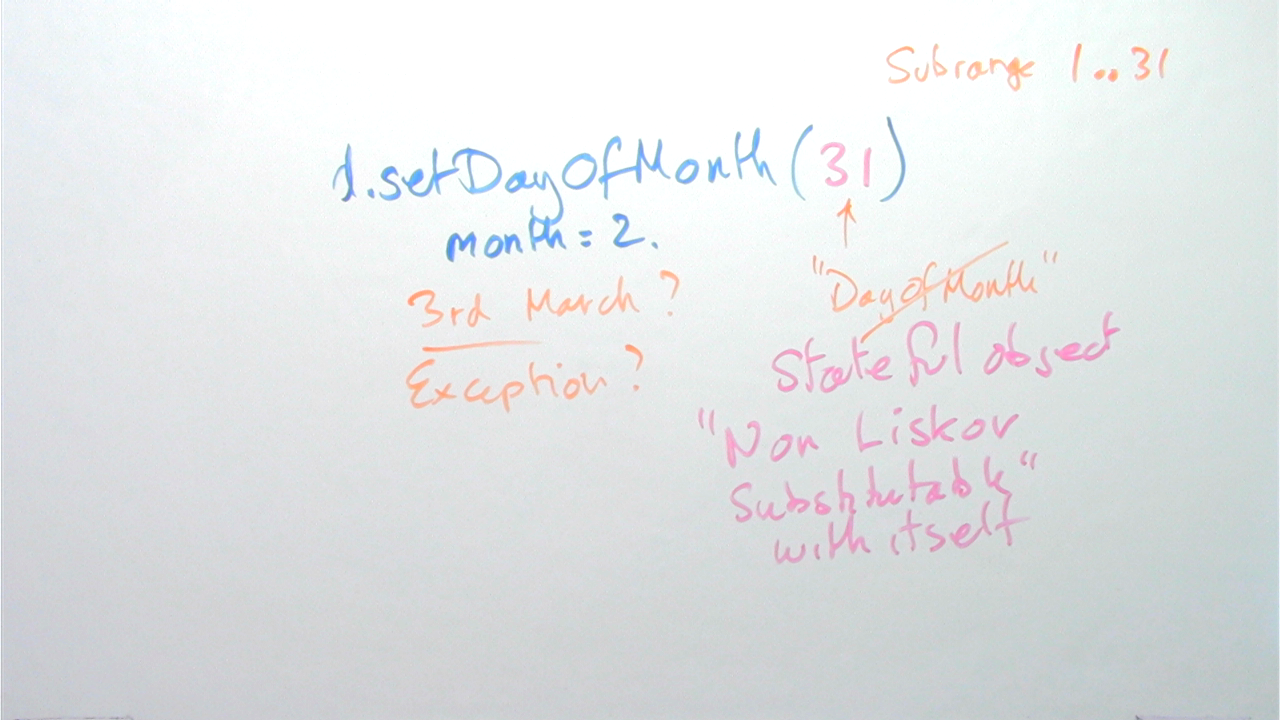 Subrange 1..31
d.setDayOfMonth(31)
month = 2.
3rd March?
Exception?
"DayofMonth"
Stateful object
"Non Liskov
Substitutable"
with itself